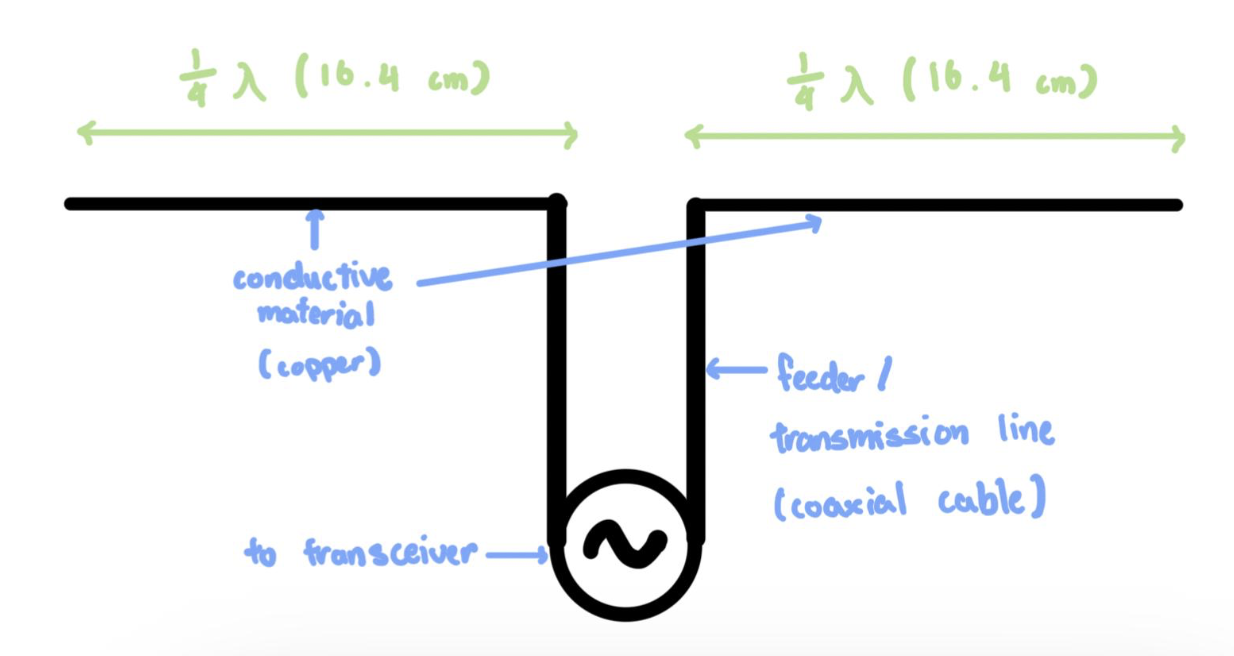 1/4 λ (16.4 cm)
1/4 λ (16.4 cm)
conductive
material
(copper)
feeder /
transmission line
(coaxial cable)
to transceiver